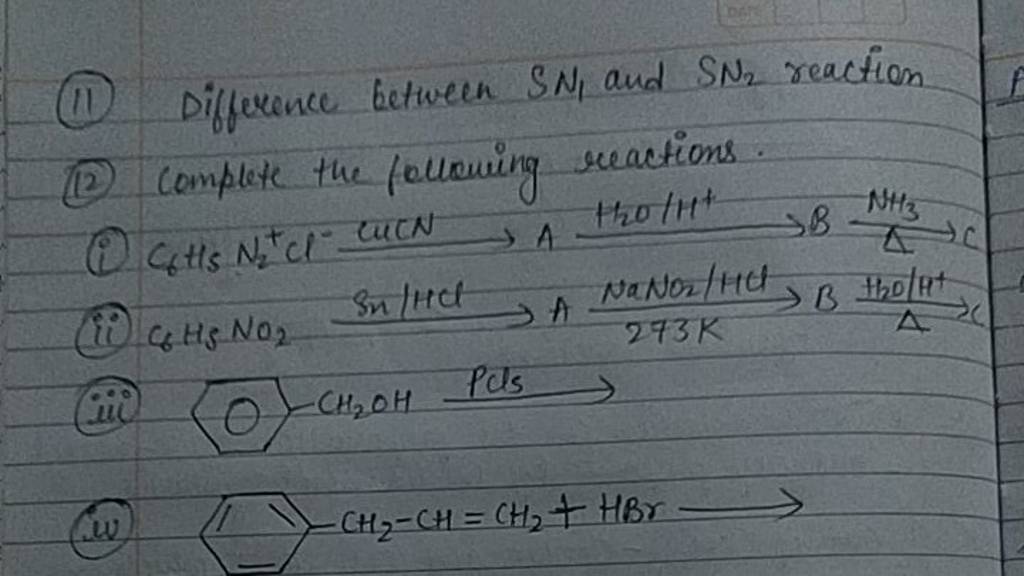 (11) Difference between SN1 and SN2 reaction
(12) Complete the following reactions.
(i) C6H5N2+Cl- CuCN → A H2O/H+ → B NH3 Δ → C
(ii) C6H5NO2 Sn/HCl → A NaNO2/HCl 273K → B H2O/H+ Δ → C
(iii) -CH2OH PCl5 →
(iv) -CH2-CH=CH2 + HBr →